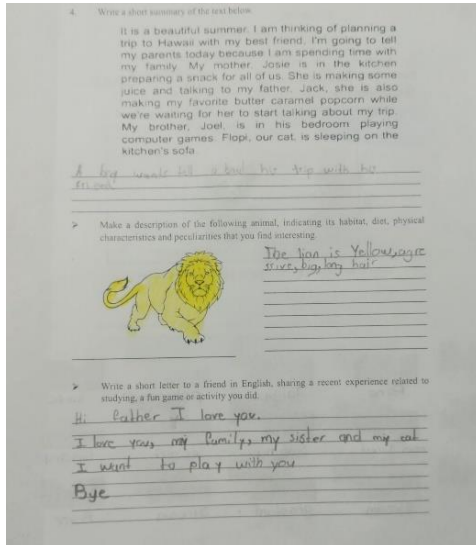 4. Write a short summary of the text below.
It is a beautiful summer. I am thinking of planning a
trip to Hawaii with my best friend. I'm going to tell
my parents today because I am spending time with
my family. My mother, Josie is in the kitchen
preparing a snack for all of us. She is making some
juice and talking to my father, Jack, she is also
making my favorite butter caramel popcorn while
we're waiting for her to start talking about my trip.
My brother, Joel, is in his bedroom playing
computer games. Flopi, our cat, is sleeping on the
kitchen's sofa.
A boy trip with
Make a description of the following animal, indicating its habitat, diet, physical
characteristics and peculiarities that you find interesting.
The lion is Yellow, agre
ssive, big, long hair
Write a short letter to a friend in English, sharing a recent experience related to
studying, a fun game or activity you did.
Hi father I love you.
I love you, my family, my sister and my cat
I want to play with you
Bye